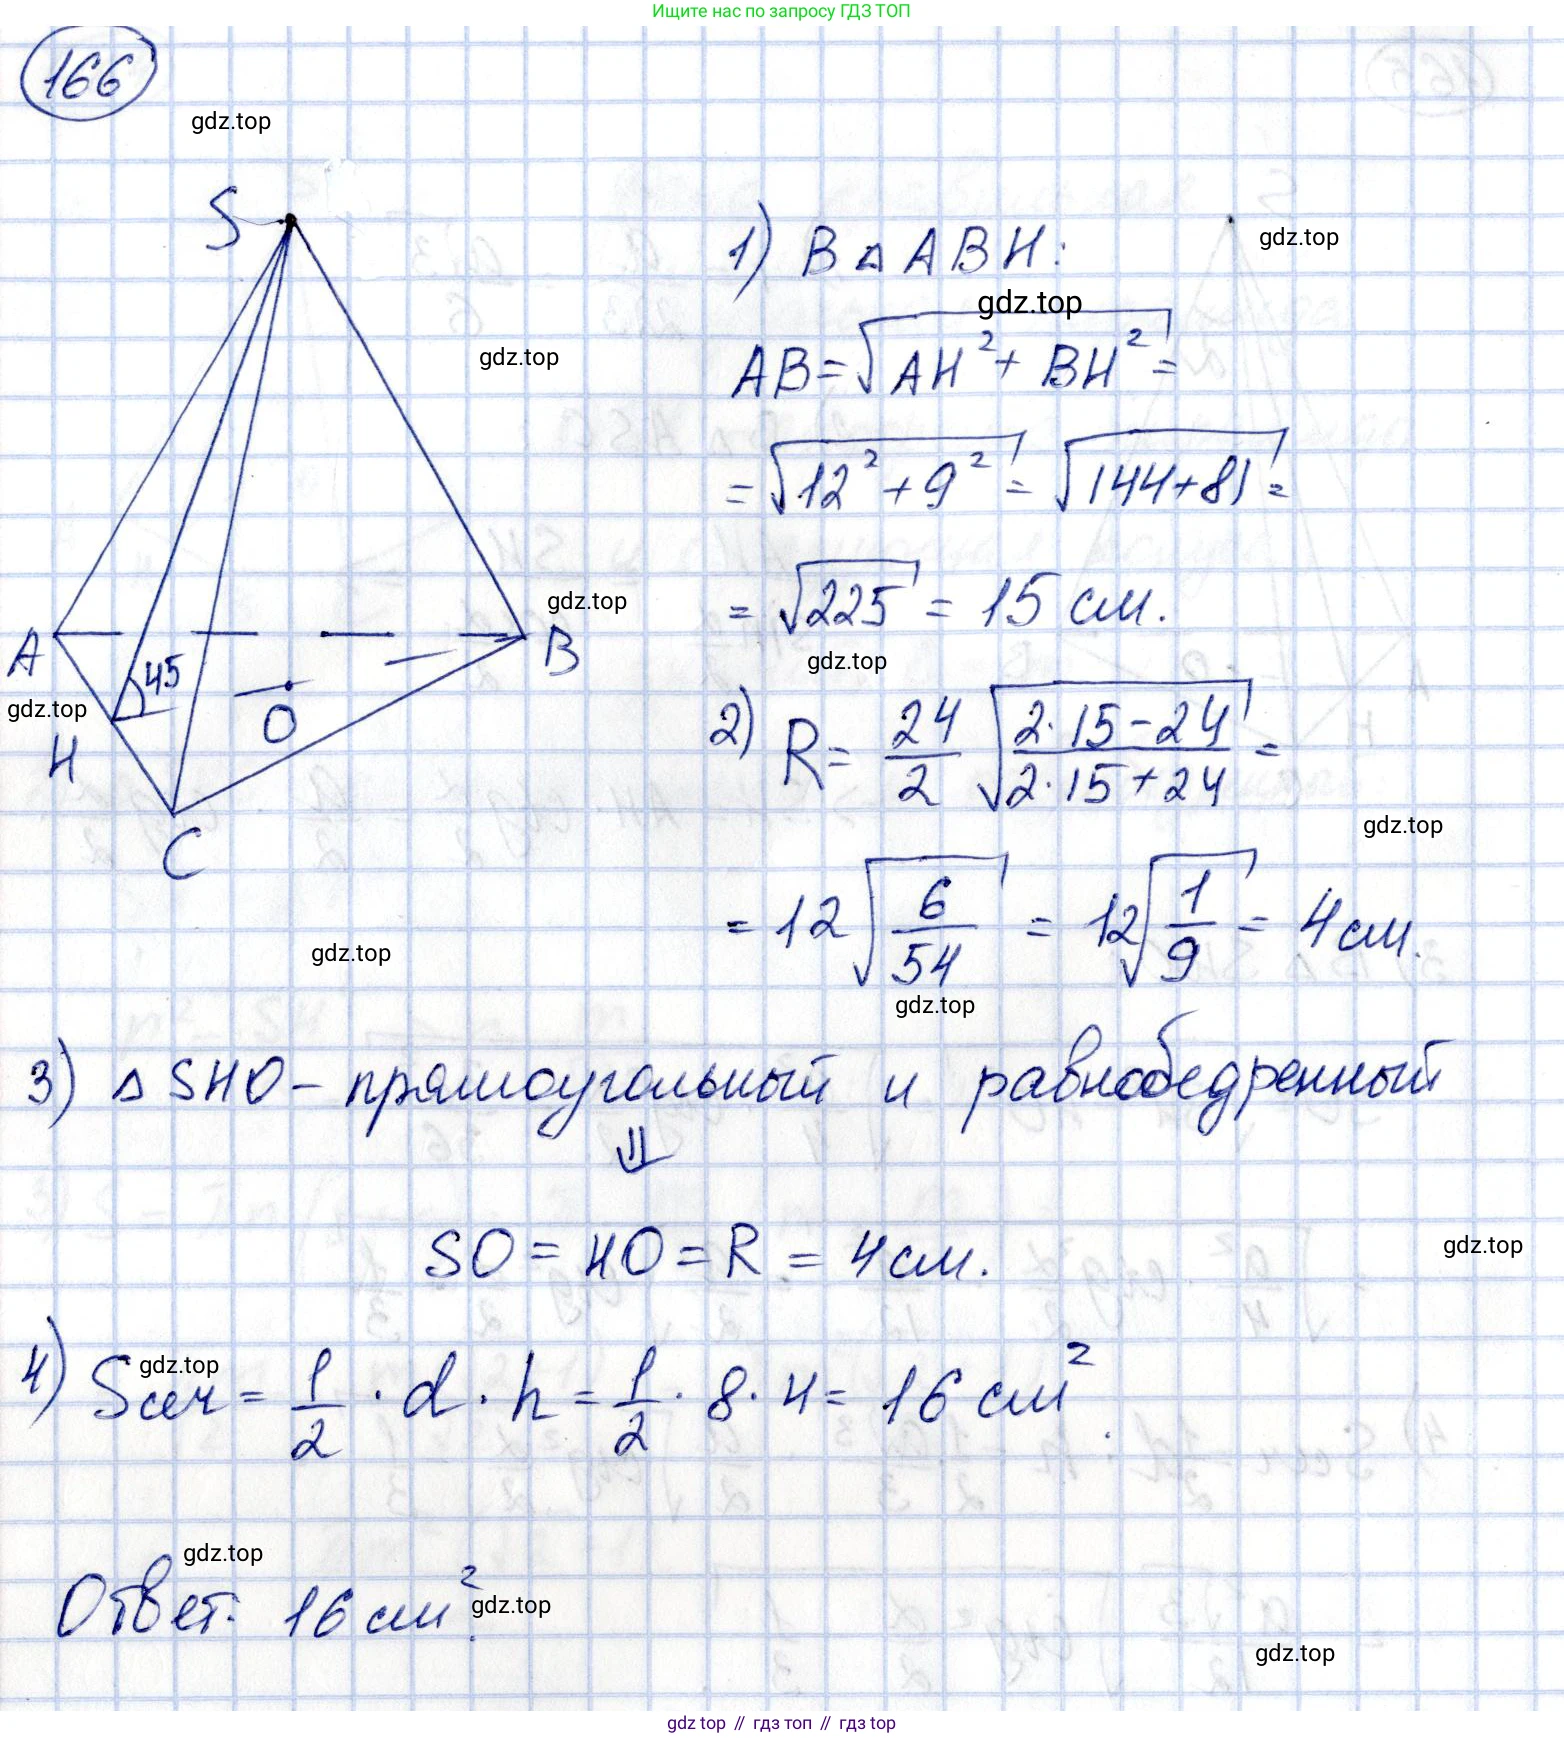 Ищите нас по запросу ГДЗ ТОП
166
gdz.top
S
1) В △ ABH:
gdz.top
gdz.top
gdz.top
AB = √(AH² + BH²) =
= √(12² + 9²) = √(144+81) =
= √225 = 15 см.
gdz.top
gdz.top
A
B
45
gdz.top
O
H
C
2) R = 24/2 √((2·15-24)/(2·15+24)) =
gdz.top
= 12 √(6/54) = 12 √(1/9) = 4 см.
gdz.top
gdz.top
3) △ SHO – прямоугольный и равнобедренный
⇓
SO = HO = R = 4 см.
gdz.top
4) Sсеч = 1/2 · d · h = 1/2 · 8 · 4 = 16 см².
gdz.top
gdz.top
Ответ: 16 см².
gdz.top
gdz.top
gdz top // гдз топ // гдз top